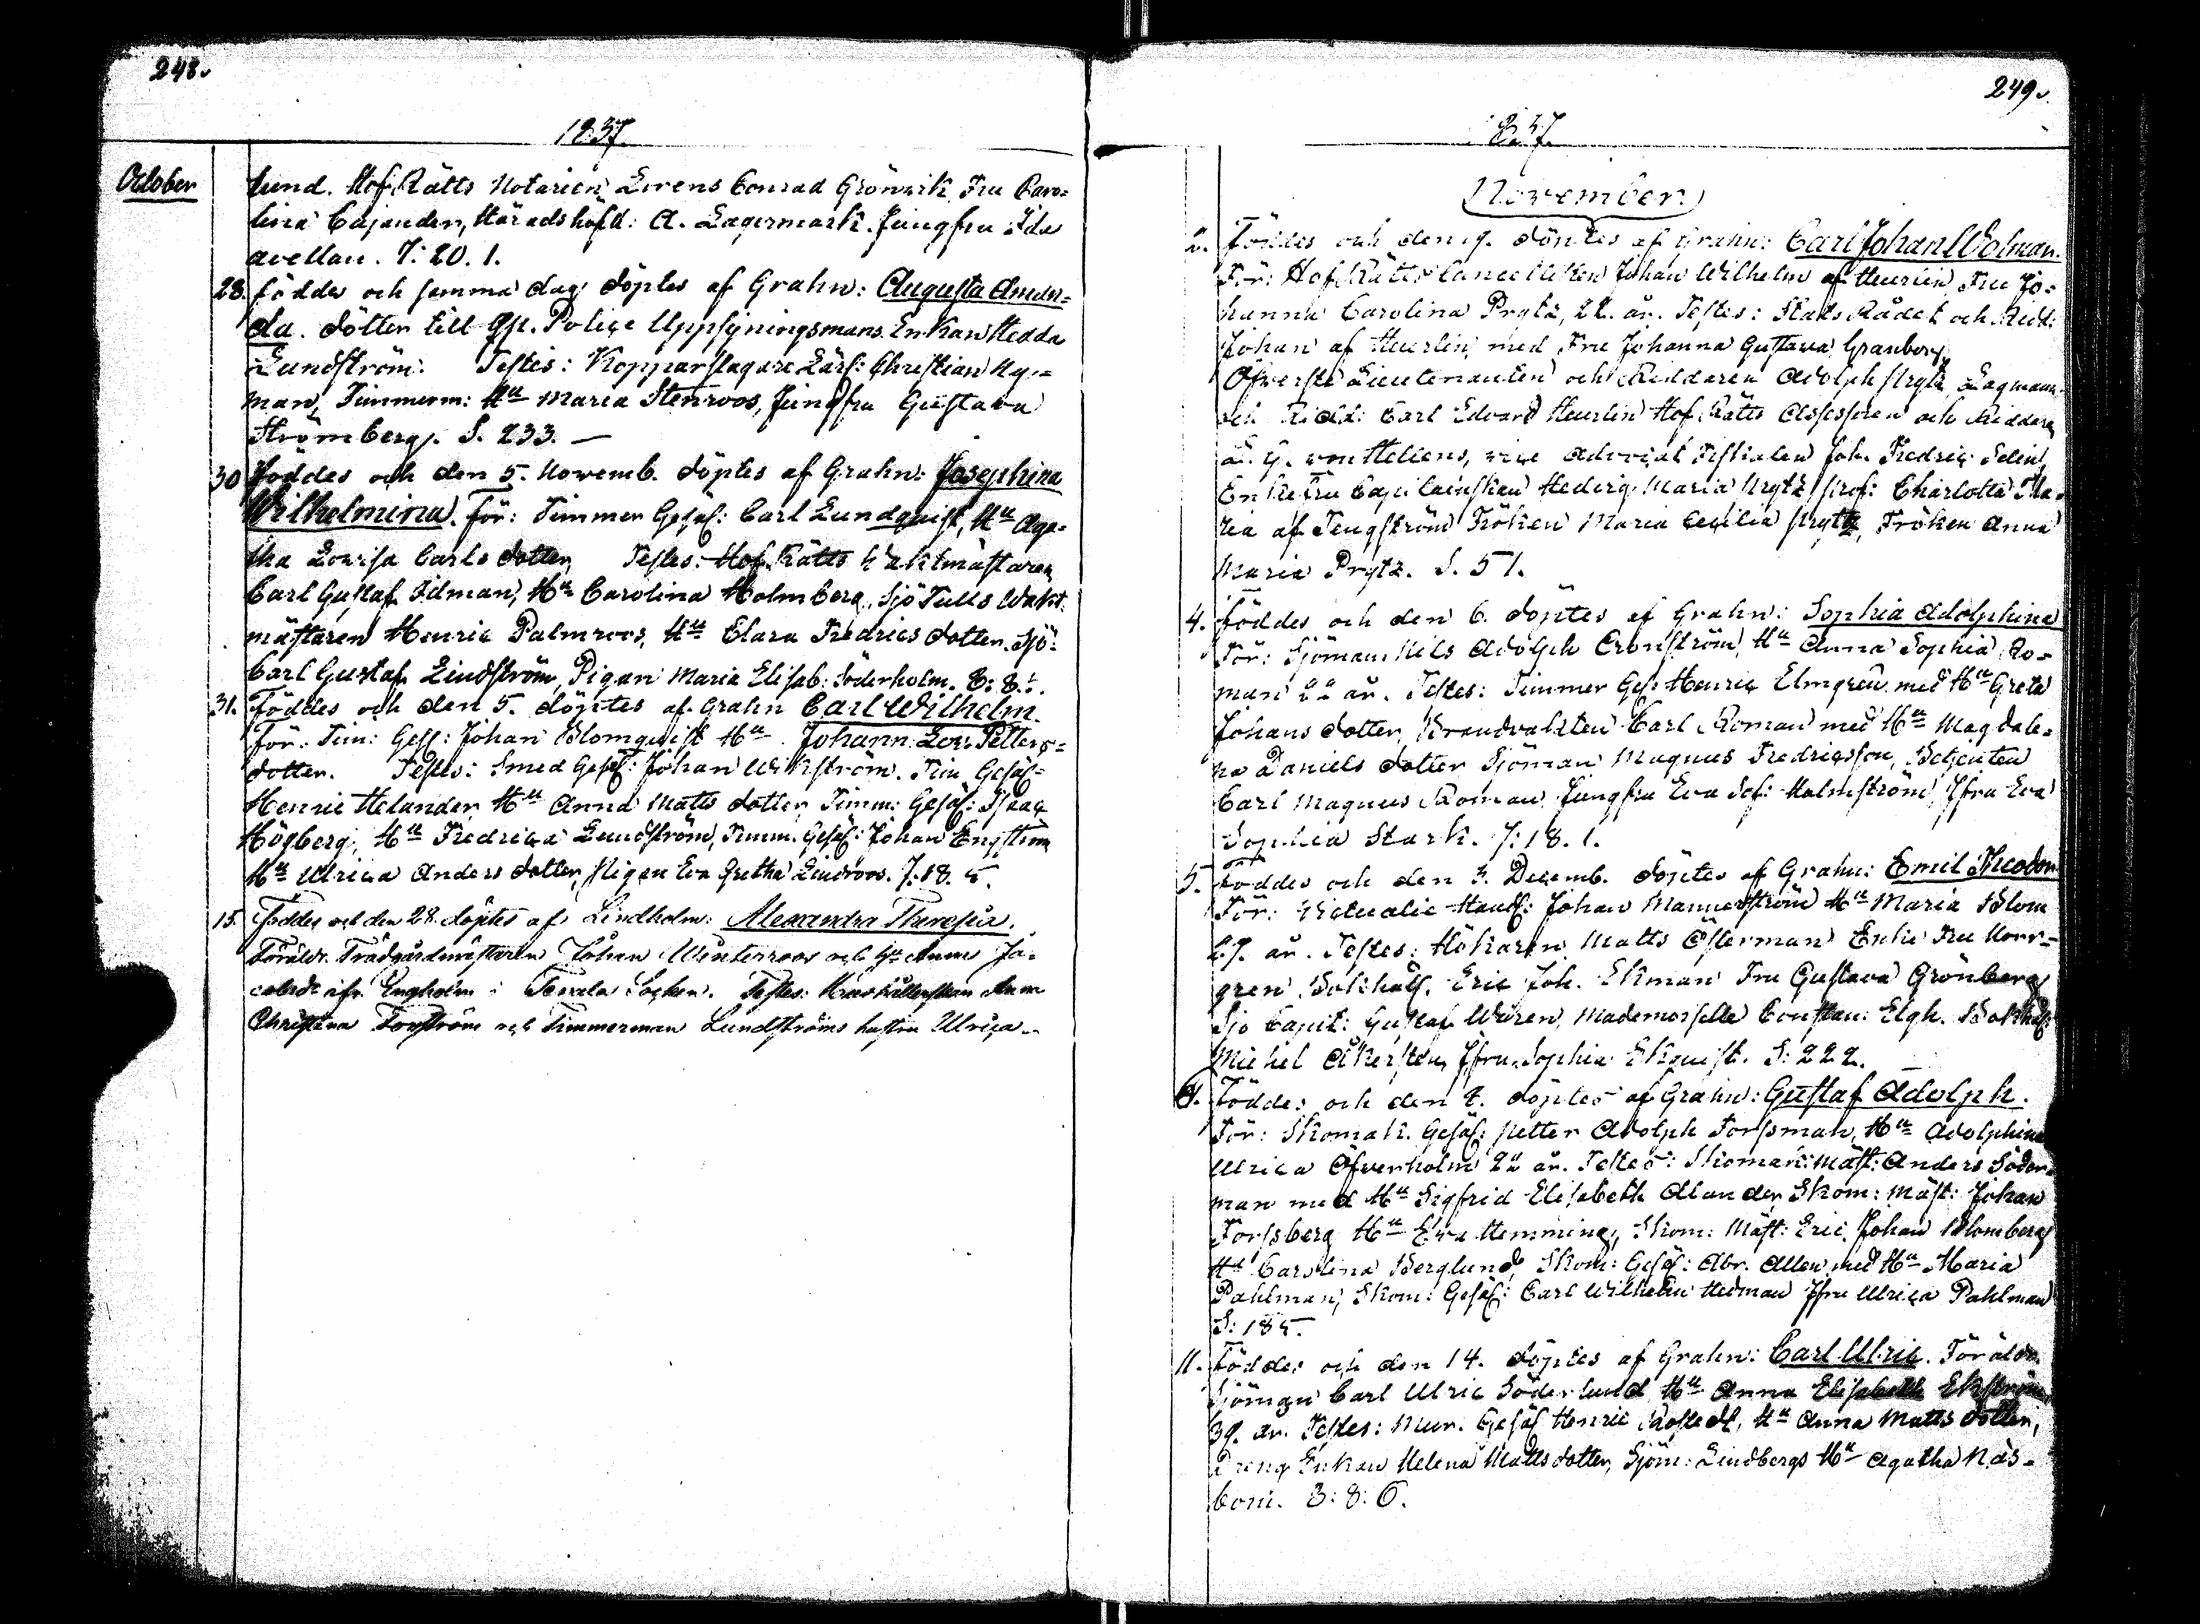 248.
1837.
October
lund. Hof Rätts Notarien Lorens Conrad Grönvik, Fru Caro=
lina Cajander, Häradshöfd: A. Lagermark. Jungfru Ida
avellan. 7: 20. 1.
28. föddes och samma dag döptes af Grahn: Augusta Aman=
da. dotter till Polise Uppsyningsmans Enkan Hedda
Lundström. Testes: Kopparslagare Lärl: Christian Ny=
man, Timmerm: Hu Maria Stenroos, Jungfru Gustava
Strömberg. S. 233. —
30 föddes och den 5. Novemb. döptes af Grahn: Josephina
Wilhelmina. För: Timmer Gesäl: Carl Lundquist, Hu Aga=
tha Lovisa Carls dotter Testes: Hof Rätts Vaktmästaren
Carl Gustaf Idman, Hu Carolina Holmberg, Sjö Tulls Vakt
mästaren Henric Palmroos, Hu Clara Fredrics dotter. Sjö:
Carl Gustaf Lindström, Pigan Maria Elisab: Söderholm. B: 8.
31. Föddes och den 5. döptes af Grahn Carl Wilhelm.
För: Tim: Gesl: Johan Blomquist Hu Johann: Lov: Petters=
dotter. Testes: Smed Gesäl: Johan Wikström. Tim. Gesäl=
Henric Helander, Hu Anna Matts dotter, Timm: Gesäl: Isaac
Högberg, Hu Fredrica Lundström, Timm. Gesäl: Johan Engström
Hu Ulrica Anders dotter, Pigan Eva Gretha Lindroos. 7. 18. 5.
15. Föddes och den 28. döptes af Lindholm: Alexandra Theresia.
Föräldr. Trädgårdsmästaren Johan Winterroos och Hu Anna Ja=
cobsdr ifr. Engholm i Tenala Socken. Testes: Hushållerskan Anna
Christina Forsström och Timmerman Lundströms hustru Ulrica.
249.
1837.
November.
2. Föddes och den 9. döptes af Grahn: Carl Johan Volmar.
För: Hof Rätts Cancellisten Johan Wilhelm af Heurlin, Fru Jo=
hanna Carolina Prytz, 22. år. Testes: Stats Rådet och Ridd:
Johan af Heurlin, med Fru Johanna Gustava Granberg,
Öfverste Lieutenanten och Riddaren Adolph Prytz, Lagmann
och Ridd: Carl Edvard Heurlin Hof Rätts Assessoren och Riddaren
G. von Hellens, vice Advocat Fiskalen Joh. Fredric Selin,
Enke Fru Capitainskan Hedvig Maria Prytz, Prof: Charlotta Ma=
ria af Tengström Fröken Maria Cecilia Prytz, Fröken Anna
Maria Prytz. S. 51.
4. föddes och den 6. döptes af Grahn: Sophia Adolphina
För: Sjöman Nils Adolph Cronström, Hu Anna Sophia Ro=
man 22 år. Testes: Timmer Ges: Henric Elmgren med Hu Greta
Johans dotter, Brandvakten Carl Roman med Hu Magdale=
na Daniels dotter Sjöman Magnus Fredricsson, Betjenten
Carl Magnus Roman, Jungfru Eva Sof: Malmström, Jfru Eva
Sophia Stark. 7: 18. 1.
5. föddes och den 3. Decemb. döptes af Grahn: Emil Theodor
För: Victualie Handl: Johan Mannerström Hu Maria Blom
27. år. Testes: Hökaren Matts Österman Enke Fru Norr=
gren, Bokhåll. Eric Joh. Ekman Fru Gustava Grönberg
Sjö Capit: Gustaf Wiren, Mademoiselle Constan: Elgh. Bokhål:
Michel Åkersten, Jfru Sophia Ekquist. S: 222.
Föddes och den 8. döptes af Grahn: Gustaf Adolph.
För: Skomak. Gesäl: Petter Adolph Forssman, Hu Adolphina
Ulrica Öfverholm 22 år. Testes: Skomak: Mäst: Anders Söder=
man med Hu Sigfrid Elisabeth Alander, Skom: Mäst: Johan
Forssberg Hu Eva Hemming, Skom: Mäst: Eric Johan Blomberg
Hu Carolina Berglund, Skom: Gesäl: Abr. Allen med Hu Maria
Pahlman, Skom: Gesäl: Carl Wilhelm Hedman Jfru Ulrica Pahlman
S: 185.
11. Föddes och den 14. döptes af Grahn: Carl Ulric. Föräldr.
Sjöman Carl Ulric Söderlund, Hu Anna Elisabeth Ekström
39. år. Testes: Mur. Gesäl Henric Rostedt, Hu Anna Matts dotter,
Dreng Enkan Helena Matts dotter, Sjöm: Lindbergs Hu Agatha Näs=
bom. 3: 8: 6.